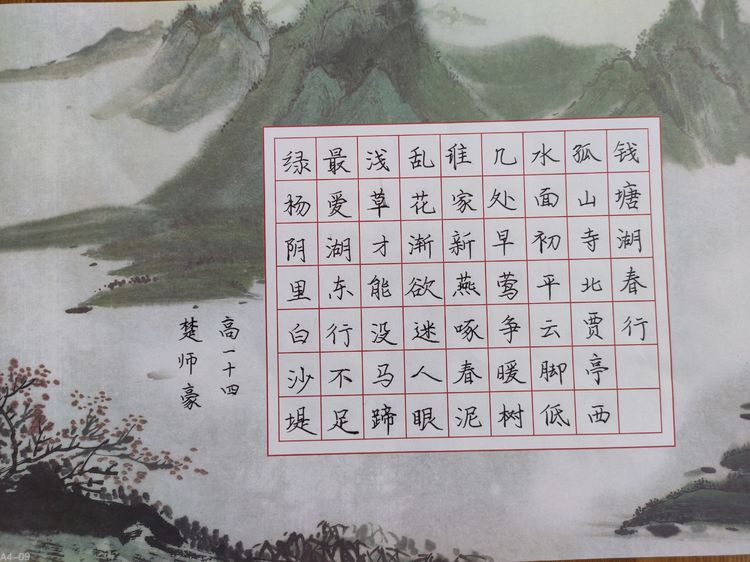 钱塘湖春行
孤山寺北贾亭西
水面初平云脚低
几处早莺争暖树
谁家新燕啄春泥
乱花渐欲迷人眼
浅草才能没马蹄
最爱湖东行不足
绿杨阴里白沙堤
高一十四
楚师豪
A4-09